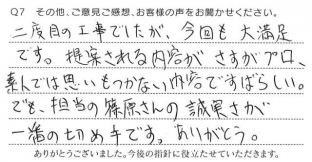 Q7 その他、ご意見ご感想、お客様の声をお聞かせください。
二度目の工事でしたが、今回も大満足
です。提案される内容がさすがプロ、
素人では思いもつかない内容ですばらしい。
でも、担当の篠原さんの誠実さが
一番の切め手です。ありがとう。
ありがとうございました。今後の指針に役立たせていただきます。